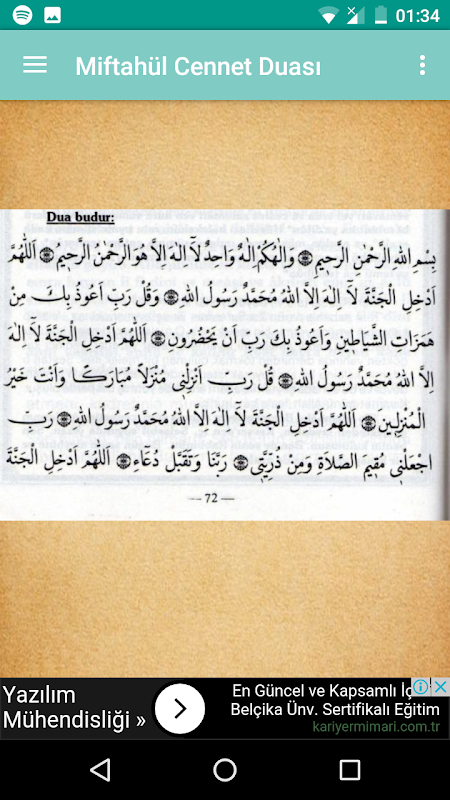 01:34
Miftahül Cennet Duası
Dua budur:
بِسْمِ اللهِ الرَّحْمٰنِ الرَّحِيمِ ۞ وَاِلٰهُكُمْ اِلٰهٌ وَاحِدٌ لَٓا اِلٰهَ اِلَّا هُوَ الرَّحْمٰنُ الرَّحِيمُ ۞ اَللّٰهُمَّ
اَدْخِلِ الْجَنَّةَ لَٓا اِلٰهَ اِلَّا اللهُ مُحَمَّدٌ رَسُولُ اللهِ ۞ وَقُلْ رَبِّ اَعُوذُ بِكَ مِنْ
هَمَزَاتِ الشَّيَاطِينِ وَاَعُوذُ بِكَ رَبِّ اَنْ يَحْضُرُونِ ۞ اَللّٰهُمَّ اَدْخِلِ الْجَنَّةَ لَٓا اِلٰهَ
اِلَّا اللهُ مُحَمَّدٌ رَسُولُ اللهِ ۞ قُلْ رَبِّ اَنْزِلْنِي مُنْزَلاً مُبَارَكًا وَاَنْتَ خَيْرُ
الْمُنْزِلِينَ ۞ اَللّٰهُمَّ اَدْخِلِ الْجَنَّةَ لَٓا اِلٰهَ اِلَّا اللهُ مُحَمَّدٌ رَسُولُ اللهِ ۞ رَبِّ
اجْعَلْنِي مُقِيمَ الصَّلَاةِ وَمِنْ ذُرِّيَّتِي ۞ رَبَّنَا وَتَقَبَّلْ دُعَٓاءِ ۞ اَللّٰهُمَّ اَدْخِلِ الْجَنَّةَ
— 72 —
Yazılım
Mühendisliği »
En Güncel ve Kapsamlı
Belçika Ünv. Sertifikalı Eğitim
kariyermimari.com.tr